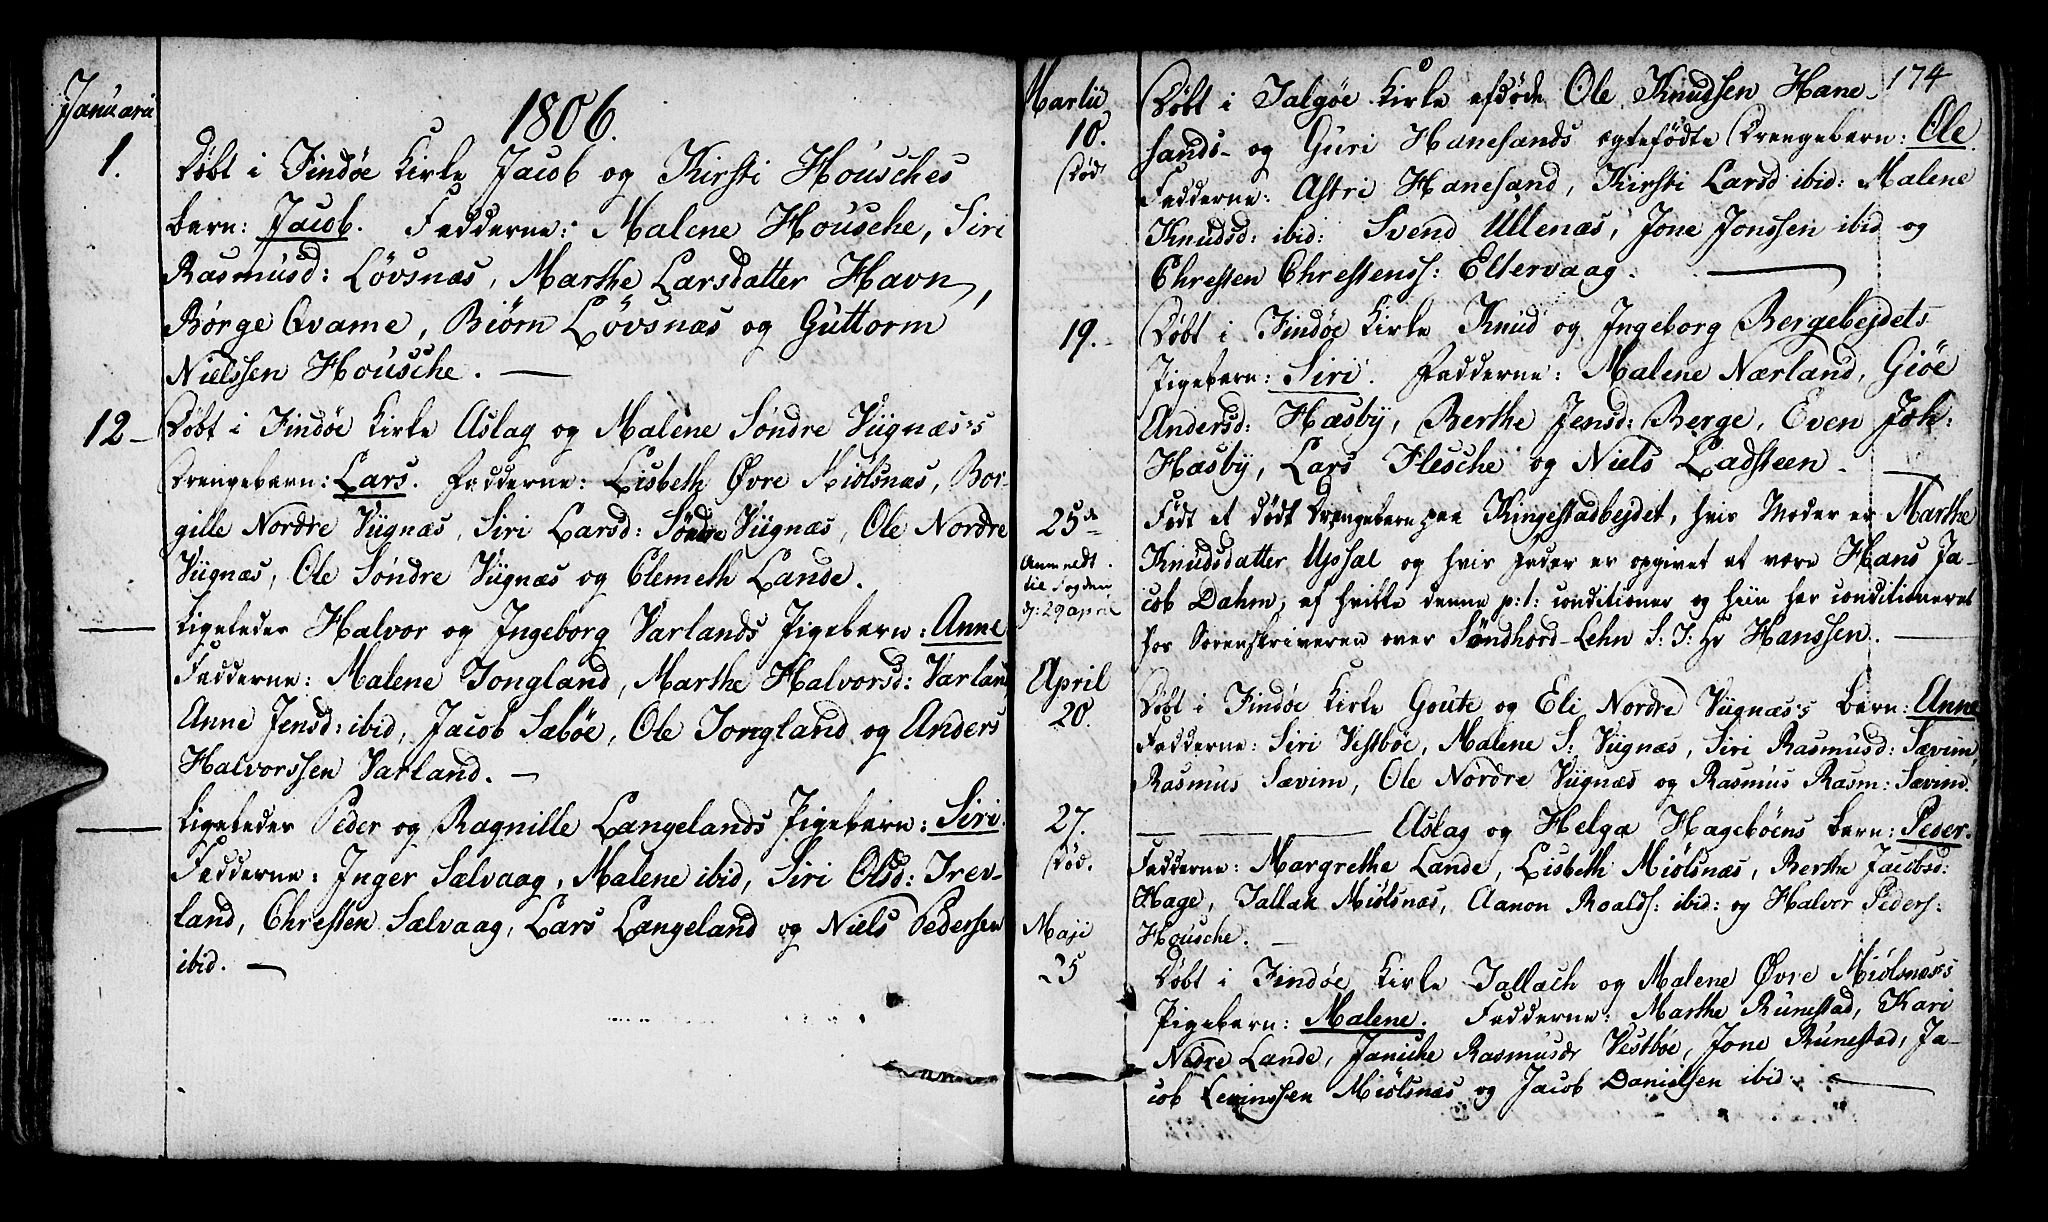 Januarii
1806.
1.
Døbt i Findøe Kirke Jacob og Kirsti Housches
barn: Jacob. Fadderne: Malene Housche, Siri
Rasmusd: Løvsnæs, Marthe Larsdatter Havn,
Børge Qvame, Biørn Løvsnæs og Guttorm
Nielssen Housche.
12
Døbt i Findøe Kirke Aslag og Malene Søndre Viignæs's
Drengebarn: Lars. Fadderne: Lisbeth Øvre Miølsnæs, Bor-
gille Nordre Viignæs, Siri Larsd: Søndre Viignæs, Ole Nordre
Viignæs, Ole Søndre Viignæs og Clemeth Lande.
Ligeledes Halvor og Ingeborg Varlands Pigebarn: Anne
Fadderne: Malene Jongland, Marthe Halvorsd: Varland
Anne Jensd: ibid, Jacob Sæbøe, Ole Jongland og Anders
Halvorssen Varland.
Ligeledes Peder og Ragnille Langelands Pigebarn: Siri.
Fadderne: Inger Sælvaag, Malene ibid, Siri Olsd: Irev-
land, Chresten Sælvaag, Lars Langeland og Niels Pedersen
ibid.
174
Martii
10.
Død
Døbt i Talgøe Kirke afdøde Ole Knudsen Hane-
sands- og Guri Hanesands ægtefødte Drengebarn: Ole
Fadderne: Astri Hanesand, Kirsti Larsd ibid: Malene
Knudsd: ibid: Svend Ullenæs, Jone Jonssen ibid og
Chresten Chrestenss: Eltervaag.
19.
Døbt i Findøe Kirke Knud og Ingeborg Bergebejdets
Pigebarn: Siri. Fadderne: Malene Nærland, Giøe
Andersd: Hæsby, Berthe Jensd: Berge, Even Joh:
Hæsby, Lars Flesche og Niels Ladsteen.
25de
Anmældt
til Fogden
d: 29 april
Født et dødt Drengebarn paa Kingestadbejdet, hvis Moder er Marthe
Knudsdatter Upsal og hvis Fader er opgivet at være Hans Ja-
cob Dahm, af hvilke denne p:t: conditioner og hiin har conditioneret
hos Sorenskriveren over Søndhord-Lehn S: T: Hr Hanssen.
April
20.
Døbt i Findøe Kirke Goute og Eli Nordre Viignæs's barn: Anne
Fadderne: Siri Vestbøe, Malene S: Viignæs, Siri Rasmusd: Sævim,
Rasmus Sævim, Ole Nordre Viignæs og Rasmus Rasm: Sævim.
27.
Død.
Aslag og Helga Hagebøens barn: Peder.
Fadderne: Margrethe Lande, Lisbeth Miølsnæs, Berthe Jacobsd:
Hage, Tallak Miølsnæs, Aanon Roalds: ibid: og Halvor Peders:
Housche.
Maji
25
Døbt i Findøe Kirke Tallach og Malene Øvre Miølsnæs's
Pigebarn: Malene. Fadderne: Marthe Runestad, Kari
Nedre Lande, Janiche Rasmusdr Vestbøe, Jone Runestad, Ja-
cob Miølsnæs og Jacob Danielsen ibid.